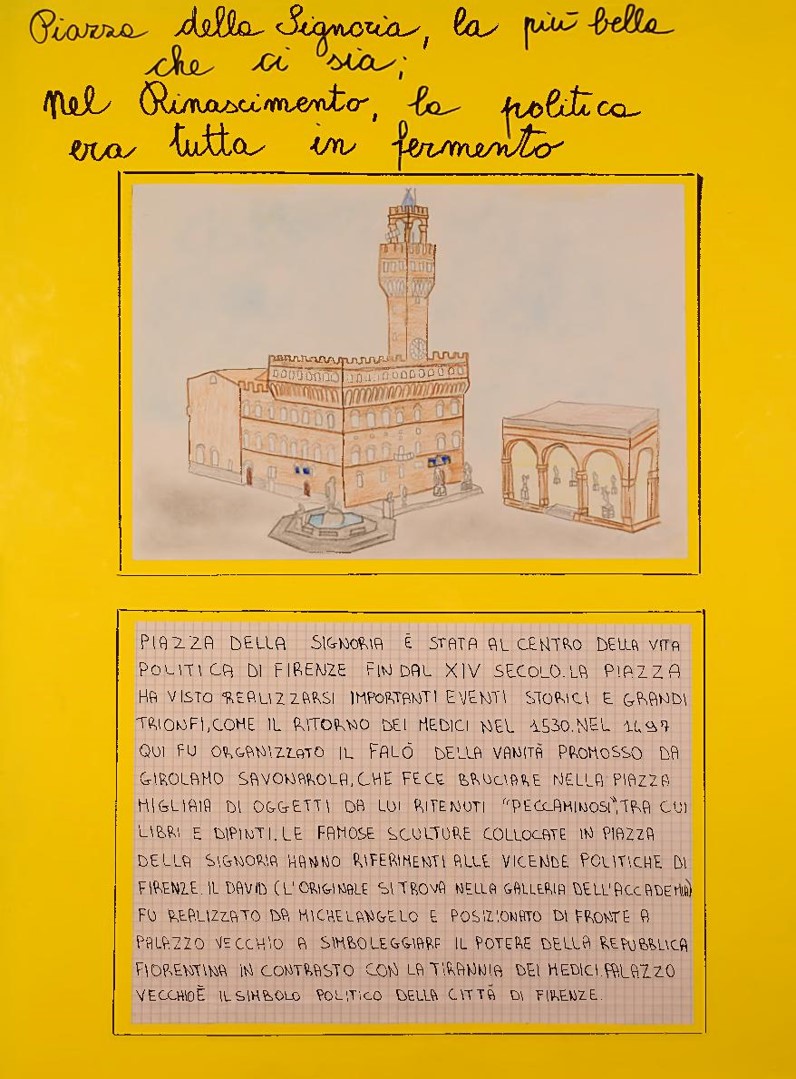 Piazza della Signoria, la più bella
che ci sia;
Nel Rinascimento, la politica
era tutta in fermento
PIAZZA DELLA SIGNORIA È STATA AL CENTRO DELLA VITA
POLITICA DI FIRENZE FIN DAL XIV SECOLO. LA PIAZZA
HA VISTO REALIZZARSI IMPORTANTI EVENTI STORICI E GRANDI
TRIONFI, COME IL RITORNO DEI MEDICI NEL 1530. NEL 1497
QUI FU ORGANIZZATO IL FALÒ DELLA VANITÀ PROMOSSO DA
GIROLAMO SAVONAROLA, CHE FECE BRUCIARE NELLA PIAZZA
MIGLIAIA DI OGGETTI DA LUI RITENUTI "PECCAMINOSI", TRA CUI
LIBRI E DIPINTI. LE FAMOSE SCULTURE COLLOCATE IN PIAZZA
DELLA SIGNORIA HANNO RIFERIMENTI ALLE VICENDE POLITICHE DI
FIRENZE. IL DAVID (L'ORIGINALE SI TROVA NELLA GALLERIA DELL'ACCADEMIA)
FU REALIZZATO DA MICHELANGELO E POSIZIONATO DI FRONTE A
PALAZZO VECCHIO A SIMBOLEGGIARE IL POTERE DELLA REPUBBLICA
FIORENTINA IN CONTRASTO CON LA TIRANNIA DEI MEDICI. PALAZZO
VECCHIO È IL SIMBOLO POLITICO DELLA CITTÀ DI FIRENZE.